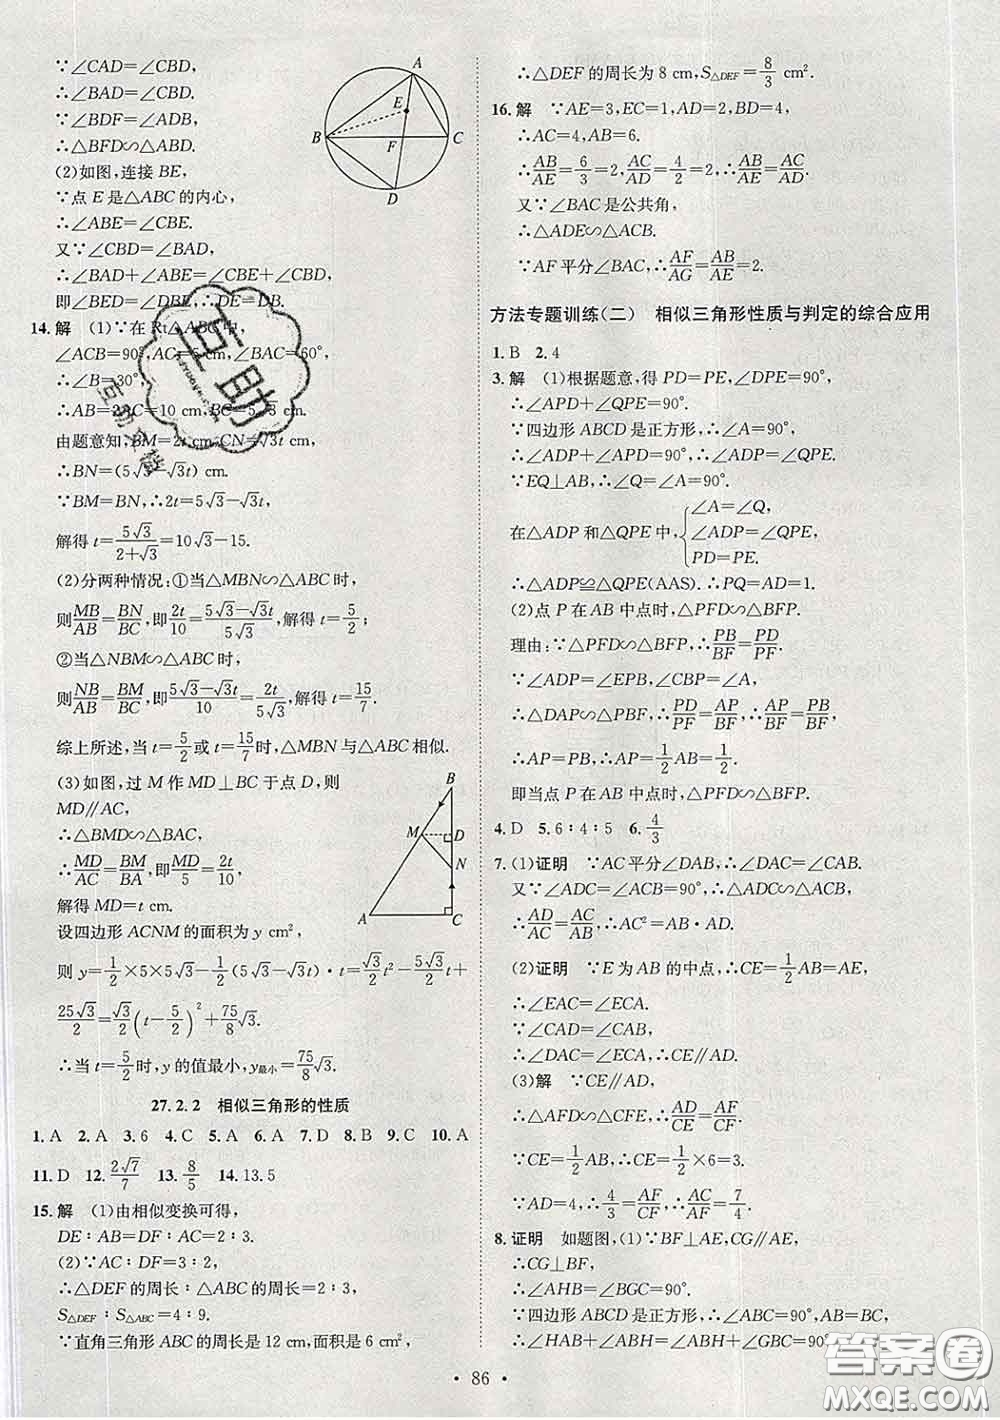 ∵∠CAD=∠CBD,
∴∠BAD=∠CBD.
∵∠BDF=∠ADB,
∴△BFD∽△ABD.
(2)如图,连接 BE,
∵点 E 是△ABC 的内心,
∴∠ABE=∠CBE.
又∵∠CBD=∠BAD,
∴∠BAD+∠ABE=∠CBE+∠CBD,
即∠BED=∠DBE,∴DE=DB.
A
E
B
F
C
D
14. 解 (1)∵在 Rt△ABC 中,
∠ACB=90°,AC=5,∠A=60°,
∴∠B=30°,
∴AB=2AC=10 cm,BC=5√3 cm.
由题意知,BM=2t cm,CN=√3t cm,
∴BN=(5√3-√3t) cm.
∵BM=BN,∴2t=5√3-√3t,
解得 t=5√3/(2+√3)=10√3-15.
(2)分两种情况:①当△MBN∽△ABC 时,
则MB/AB=BN/BC,即2t/10=(5√3-√3t)/(5√3),解得 t=5/2;
②当△NBM∽△ABC 时,
则NB/AB=BM/BC,即(5√3-√3t)/10=2t/(5√3),解得 t=15/7.
综上所述,当 t=5/2或 t=15/7时,△MBN 与△ABC 相似.
(3)如图,过 M 作 MD⊥BC 于点 D,则
MD∥AC,
∴△BMD∽△BAC,
∴MD/AC=BM/BA,即MD/5=2t/10,
解得 MD=t cm.
设四边形 ACNM 的面积为 y cm²,
则 y=1/2×5×5√3-1/2(5√3-√3t)·t=√3/2t²-5√3/2t+
25√3/2=√3/2(t-5/2)²+75/8√3.
∴当 t=5/2时,y 的值最小,y最小=75/8√3.
B
M
D
N
A
C
27.2.2 相似三角形的性质
1. A 2. A 3. 6 4. C 5. A 6. A 7. D 8. B 9. C 10. A
11. D 12. 2√7/7 13. 8/5 14. 13.5
15. 解 (1)由相似变换可得,
DE∶AB=DF∶AC=2∶3.
(2)∵AC∶DF=3∶2,
∴△DEF 的周长∶△ABC 的周长=2∶3,
S△DEF∶S△ABC=4∶9.
∵直角三角形 ABC 的周长是 12 cm,面积是 6 cm²,
∴△DEF 的周长为 8 cm,S△DEF=8/3 cm².
16. 解 ∵AE=3,EC=1,AD=2,BD=4,
∴AC=4,AB=6.
∴AB/AE=6/3=2,AC/AD=4/2=2,∴AB/AE=AC/AD.
又∵∠BAC 是公共角,
∴△ADE∽△ACB.
∵AF 平分∠BAC,∴AF/AG=AB/AE=2.
方法专题训练(二) 相似三角形性质与判定的综合应用
1. B 2. 4
3. 解 (1)根据题意,得 PD=PE,∠DPE=90°,
∴∠APD+∠QPE=90°.
∵四边形 ABCD 是正方形,∴∠A=90°,
∴∠ADP+∠APD=90°,∴∠ADP=∠QPE.
∵EQ⊥AB,∴∠Q=∠A=90°.
在△ADP 和△QPE 中,{∠A=∠Q,
∠ADP=∠QPE,
PD=PE.
∴△ADP≌△QPE(AAS).∴PQ=AD=1.
(2)点 P 在 AB 中点时,△PFD∽△BFP.
理由:∵△PFD∽△BFP,∴PB/BF=PD/PF.
∵∠ADP=∠EPB,∠CBP=∠A,
∴△DAP∽△PBF,∴PD/PF=AP/BF,∴AP/BF=PB/BF,
∴AP=PB,∴AP=1/2AB=1/2.
即当点 P 在 AB 中点时,△PFD∽△BFP.
4. D 5. 6∶4∶5 6. 4/3
7. (1)证明 ∵AC 平分∠DAB,∴∠DAC=∠CAB.
又∵∠ADC=∠ACB=90°,∴△ADC∽△ACB,
∴AD/AC=AC/AB,∴AC²=AB·AD.
(2)证明 ∵E 为 AB 的中点,∴CE=1/2AB=AE,
∴∠EAC=∠ECA.
∵∠CAD=∠CAB,
∴∠DAC=∠ECA,∴CE∥AD.
(3)解 ∵CE∥AD,
∴△AFD∽△CFE,∴AD/CE=AF/CF.
∵CE=1/2AB,∴CE=1/2×6=3.
∵AD=4,∴4/3=AF/CF,∴AC/AF=7/4.
8. 证明 如题图,(1)∵BF⊥AE,CG∥AE,
∴CG⊥BF,
∴∠AHB=∠BGC=90°.
∵四边形 ABCD 是正方形,∴∠ABC=90°,AB=BC,
∴∠HAB+∠ABH=∠ABH+∠GBC=90°,
· 86 ·
互助
答案圈
MXQE.COM